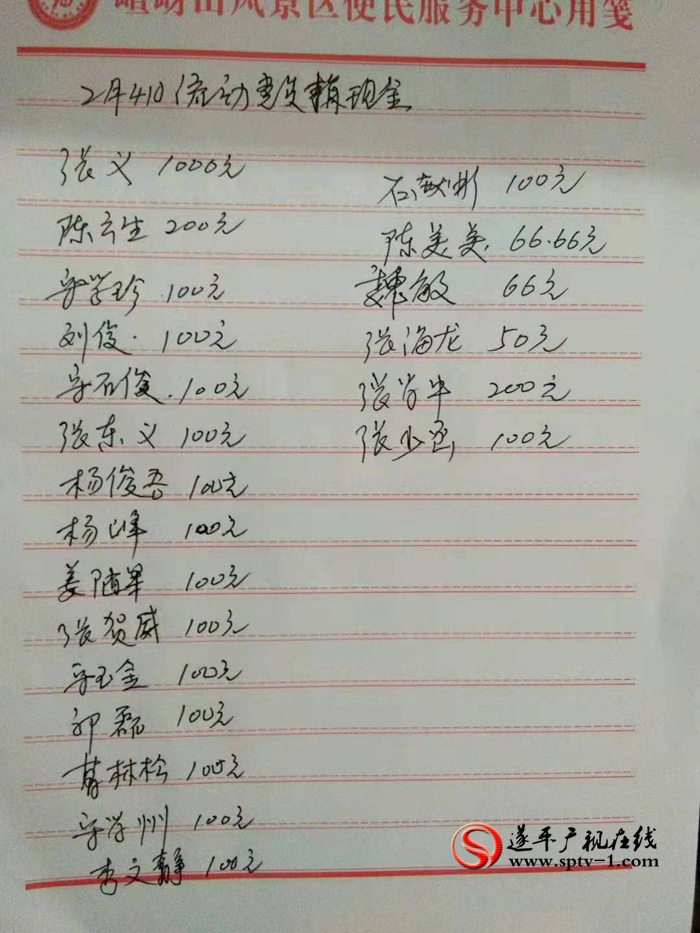 嵖岈山风景区便民服务中心用笺
2月4日流动党员捐现金
张义 1000元
陈云生 200元
学珍 100元
刘俊 100元
石俊 100元
张东义 100元
杨俊吾 100元
杨峰 100元
姜随军 100元
张贺威 100元
玉金 100元
郭磊 100元
林松 100元
学州 100元
李文静 100元
石献彬 100元
陈美美 66.66元
魏敏 66元
张海龙 50元
张 200元
张少 100元
遂平广视在线
www.sptv-1.com